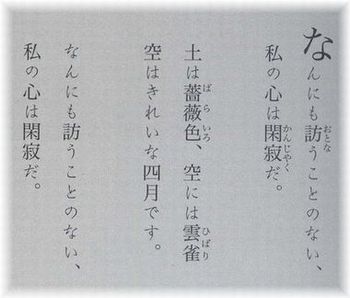 なんにも訪うことのない、
私の心は閑寂だ。
土は薔薇色、空には雲雀
空はきれいな四月です。
なんにも訪うことのない、
私の心は閑寂だ。